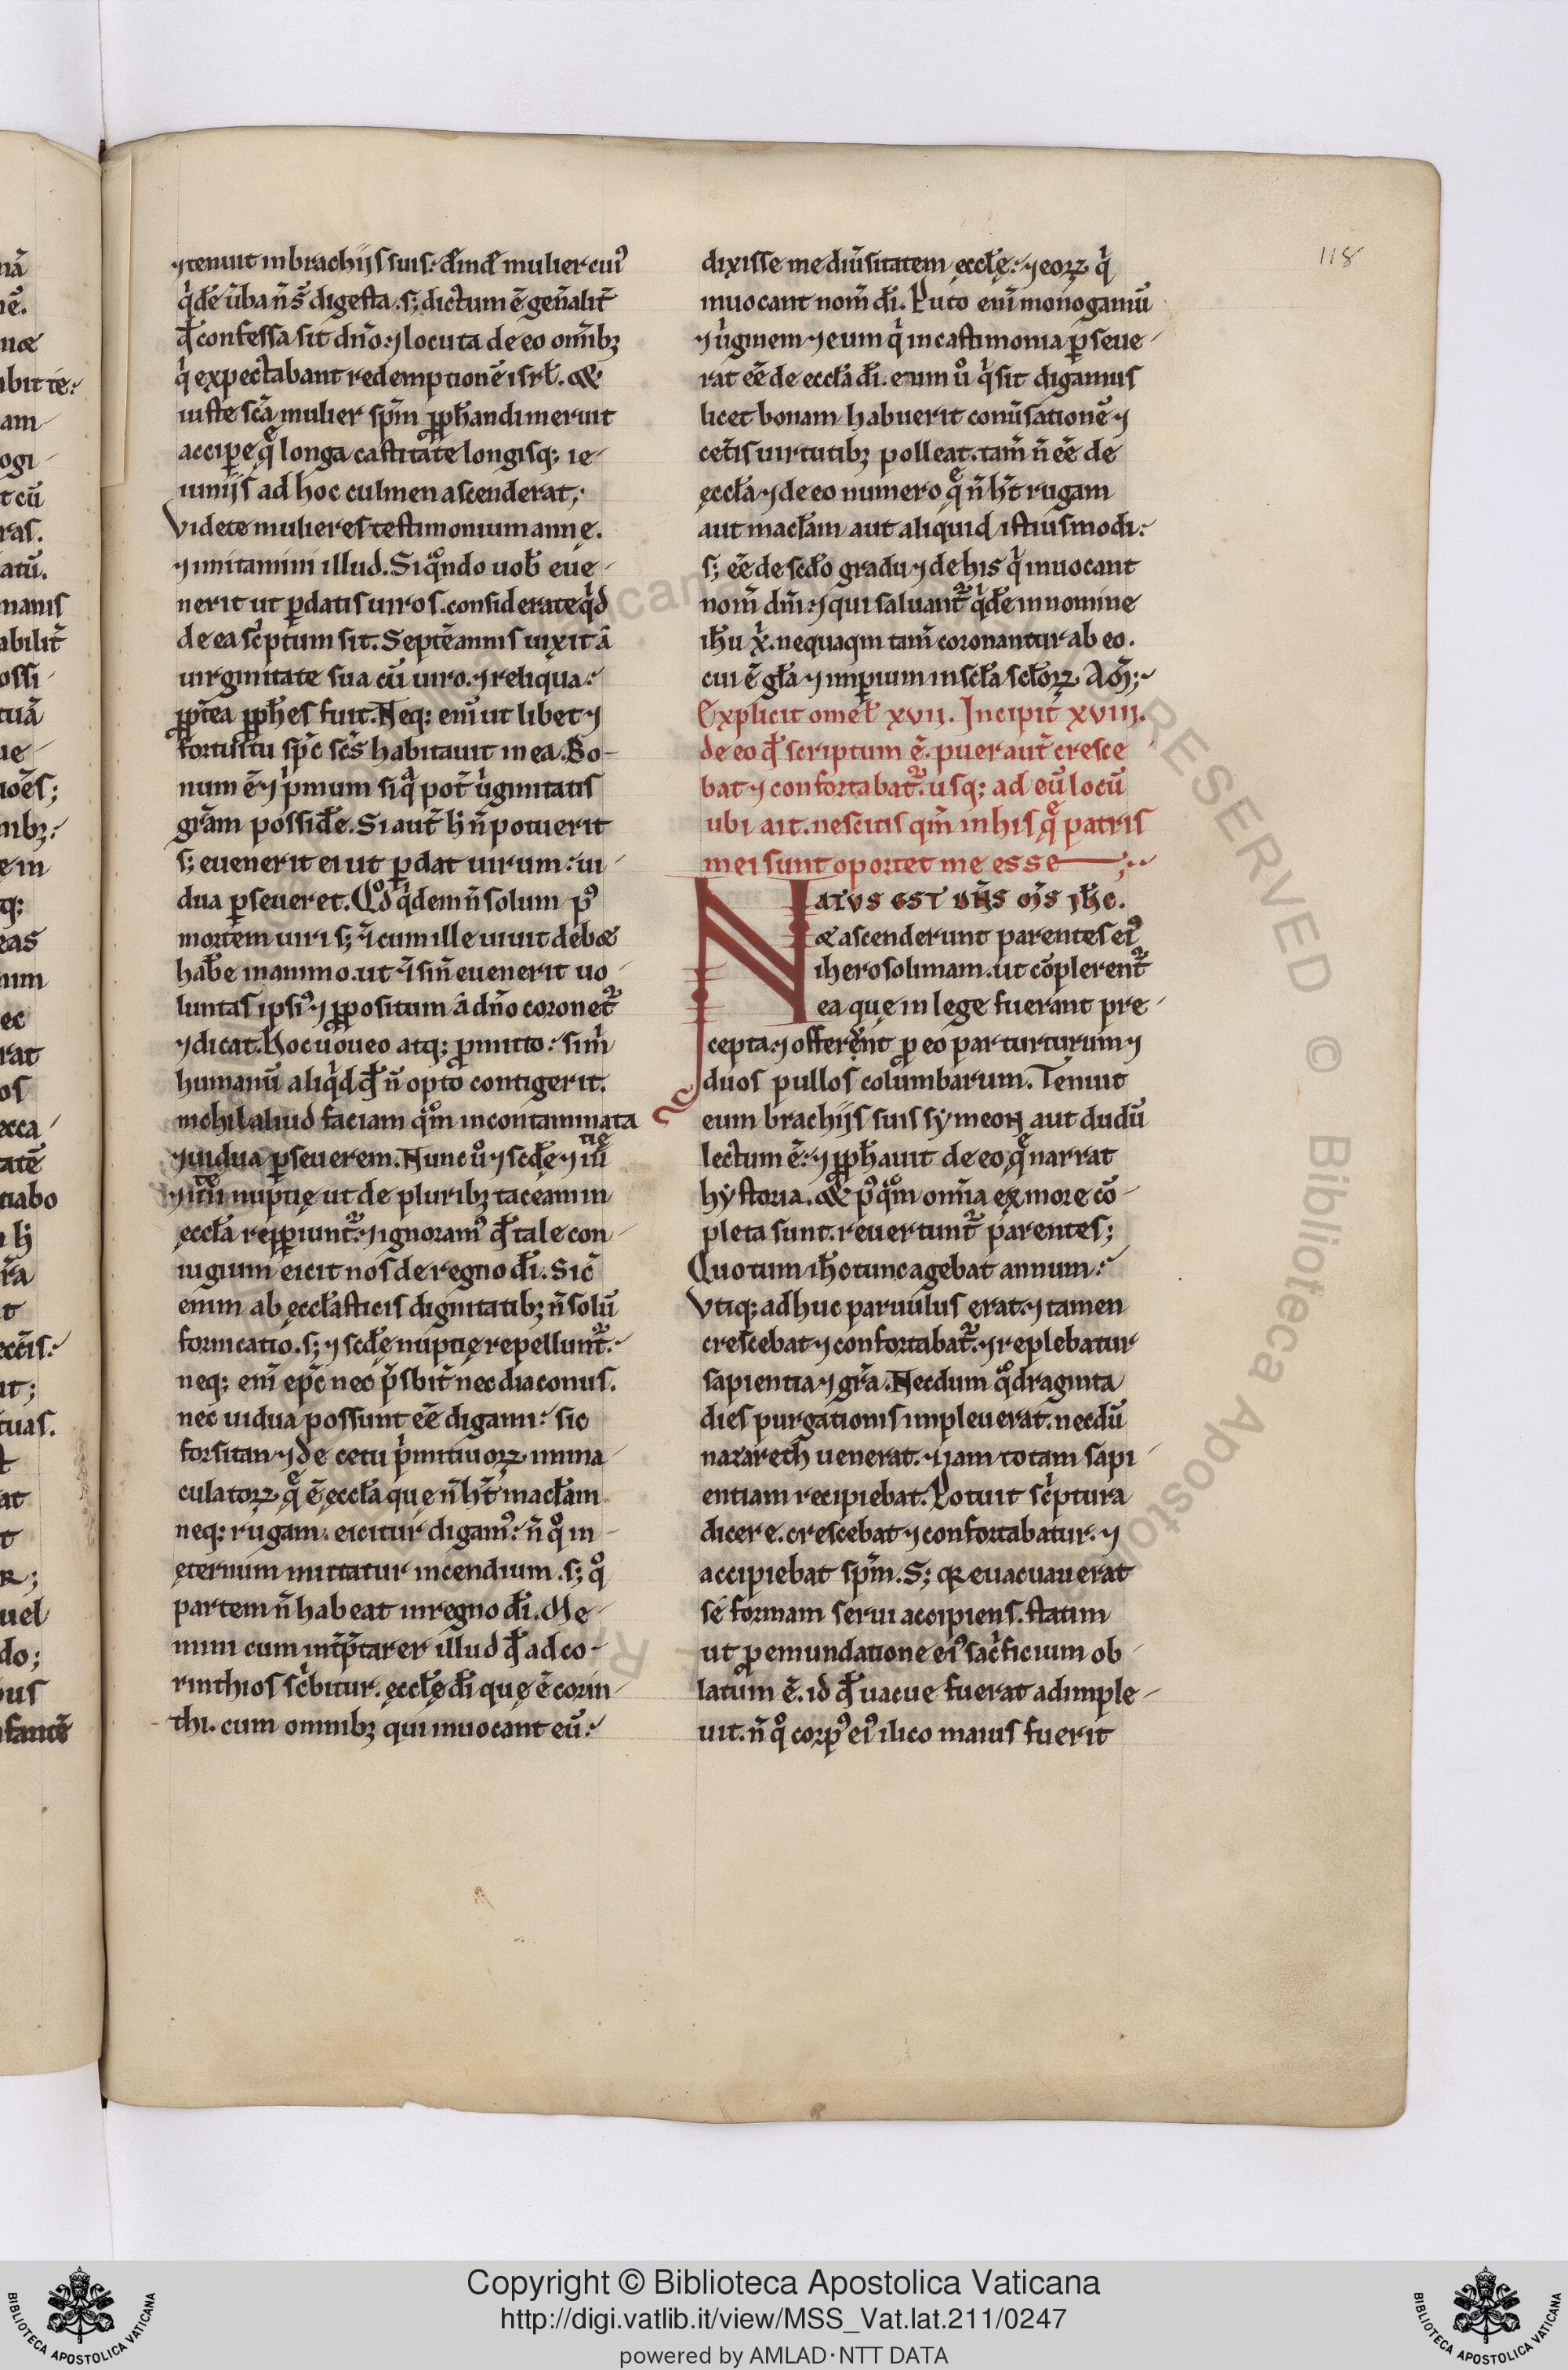 ⁊ tenuit in brachijs suis. dīnd mulier cui᷒
q̍dē ūba n̄ s̄ digesta. s; dictum ē gen̄alit̄
qđ confessa sit dn̄o. ⁊ locuta de eo omīb;
q̍ expectabant redemptionē isrł. Et
iuste sc̄a mulier sp̄m ꝓph̄andi meruit
accipe q̄ longa castitate longisq; ie-
iunijs ad hoc culmen ascenderat;
Videte mulieres testimonium annę.
⁊ imitamini illud. Si qn̄do uob̄ eue-
nerit ut ꝑdatis uiros. considerate q̍d
de ea sc̍ptum sit. Septē annis uixit a
uirginitate sua cū uiro. ⁊ reliqua.
ꝓpt̄ea ꝓph̄es fuit. Neq; eni᷒ ut libet ⁊
fortuitu sp̄c sc̄s habitauit in ea. Bo-
num ē ⁊ p̍mum siq̄ pot̄ ūginitatis
gr̄am possidē. Si aut̄ h̄ n̄ potuerit
s; euenerit ei ut ꝑdat uirum. ui-
dua ꝑseueret. Qđ q̍dem n̄ solum p᷒
mortem uiri s; ⁊ cum ille uiuit debæ
hab̄e in animo. ut ⁊ sin̄ euenerit uo-
luntas ipsi᷒ ⁊ ꝓpositum a dn̄o coronet᷑
⁊ dicat. Hoc uoueo atq; ꝓmitto. sim̄
humanū aliq̍d qđ n̄ opto contigerit.
nichil aliud faciam q̄m incontaminata
⁊ uidua ꝑseuerem. Nunc u᷒ ⁊ scđe ⁊ iii
tię
⁊ iiii nuptię ut de pluribꝫ taceam in
ęccła repꝑiunt᷑. ⁊ ignoram᷒ qđ tale con-
iugium eicit nos de regno dī. Sic̄
enim ab ęccłasticis dignitatibꝫ n̄ solū
fornicatio. s; ⁊ scđę nuptię repellunt᷑.
neq; eni᷒ ep̄c nec p̄sbit̄ nec diaconus.
nec uidua possunt eē digami. sic
forsitan ⁊ de cetu p̍mitiuoꝝ imma-
culatoꝝ q̄ ē ęccła que n̄ h̄t macłam
neq; rugam. eicitur digam᷒. n̄ q᷒ in-
ęternum mittatur incendium. s; q᷒
partem n̄ habeat in regno dī. Me-
mini cum int̄p̄tarer illud qđ ad co-
rinthios sc̍bitur. ęccłę dī quę ē corin-
thi. cum omnibꝫ qui inuocant eū.
dixisse me diūsitatem ęccłę. ⁊ eoꝝ q̍
inuocant nom̄ dī. Puto eni᷒ monogamū
⁊ ūginem ⁊ eum q̍ in castimonia ꝑseue-
rat eē de eccła dī. eum u᷒ q̍ sit digamus
licet bonam habuerit conūsationē ⁊
cet̄is uirtutibꝫ polleat. tam̄ n̄ eē de
ęccła ⁊ de eo numero q̄ n̄ h̄t rugam
aut macłam aut aliquid istiusmodi.
s; eē de scđo gradu ⁊ de his q̍ inuocant
nom̄ dn̄i. ⁊ qui saluant᷑ q̍dē in nomine
ih̄u x̄. nequaqm̄ tam̄ coronantur ab eo.
cui ē gła ⁊ imꝑium in scła scłoꝝ. Am̄;
Explicit omeł xvii. Incipit xviii.
de eo qđ scriptum ē. puer aut̄ cresce
bat ⁊ confortabat᷑. usq; ad eū locū
ubi ait. nescitis qm̄ in his q̄ patris
mei sunt oportet me esse;
NATVS EST DN̄S M̄S IH̄C.
æ ascenderunt parentes ei᷒
iherosolimam. ut cōplerent᷑
ea quę in lege fuerant pre-
cepta. ⁊ offerent ꝓ eo par turturum ⁊
duos pullos columbarum. Tenuit
eum brachijs suis symeon aut dudū
lectum ē. ⁊ ꝓph̄auit de eo q̄ narrat
hystoria. Et p᷒q̄m omīa ex more cō-
pleta sunt. reuertunt᷑ parentes;
Quotum ih̄c tunc agebat annum.
Vtiq; adhuc paruulus erat. ⁊ tamen
crescebat ⁊ confortabat᷑. ⁊ replebatur
sapientia ⁊ gr̄a. Necdum q᷒draginta
dies purgationis impleuerat. necdū
nazareth uenerat. ⁊ iam totam sapi-
entiam recipiebat. Potuit sc̍ptura
dicere. crescebat ⁊ confortabatur. ⁊
accipiebat sp̄m. S; qꝛ euacuauerat
se formam serui accipiens. statim
ut ꝓ emundatione ei᷒ sac̍ficium ob-
latum ē. id qđ uacue fuerat adimple-
uit. n̄ q᷒ corp᷒ ei᷒ ilico maius fuerit
118
Copyright © Biblioteca Apostolica Vaticana
http://digi.vatlib.it/view/MSS_Vat.lat.211/0247
powered by AMLAD·NTT DATA
BIBLIOTECA APOSTOLICA VATICANA
BIBLIOTECA APOSTOLICA VATICANA